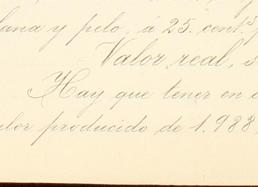 lana y pelo, á 25. cent.s
Valor real, s
Hay que tener en c
alor producido de 1.988,